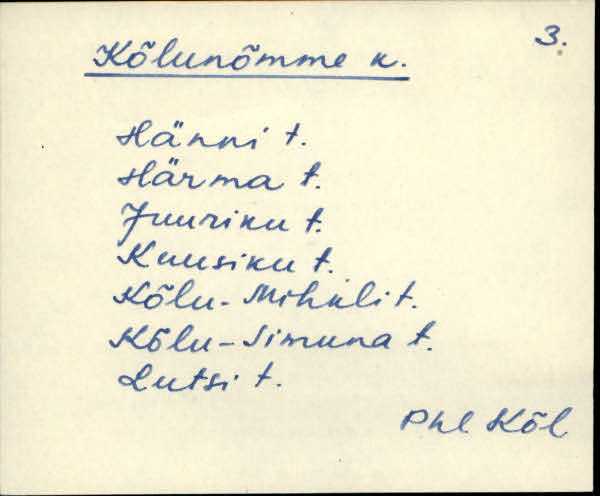 3.
Kõlunõmme k.
Hänni t.
Härma t.
Juuriku t.
Kuusiku t.
Kõlu-Mihkli t.
Kõlu-Simuna t.
Lutsi t.
Phl Kõl